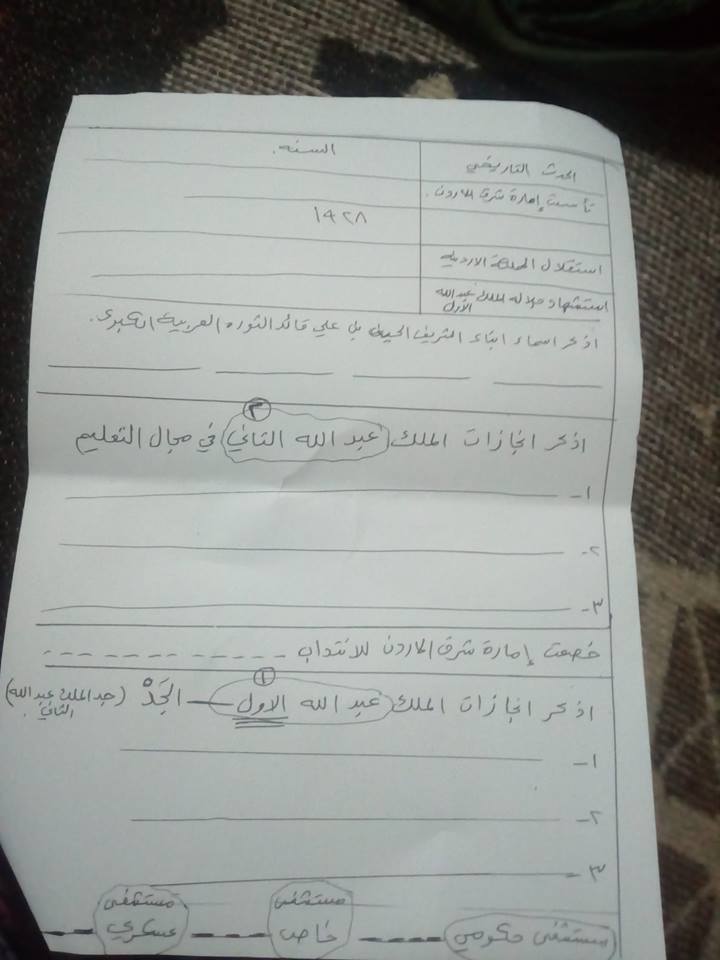 الحدث التاريخي السنه.
تأسست إمارة شرق الاردن.
١٤٢٨
استقلال المملكة الاردنية
استشهاد جلالة الملك عبد الله الأول
اذكر اسماء ابناء الشريف الحسين بن علي قائد الثوره العربية الكبرى.
٢
اذكر انجازات الملك عبد الله الثاني في مجال التعليم
١-
٢-
٣-
خضعت إمارة شرق الاردن للانتداب
١
اذكر انجازات الملك عبد الله الاول - الجَدْ (جد الملك عبد الله الثاني)
١-
٢-
٣-
مستشفى حكومي مستشفى خاص مستشفى عسكري